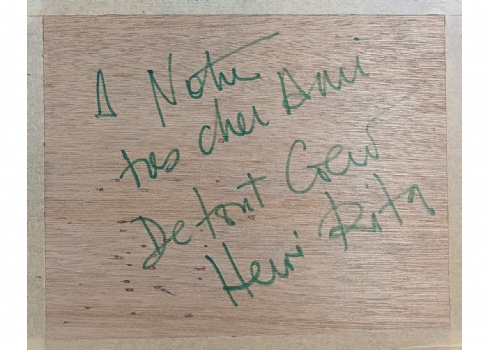 A Notre
tres cher Ami
De tout Coeur
Henri Rita